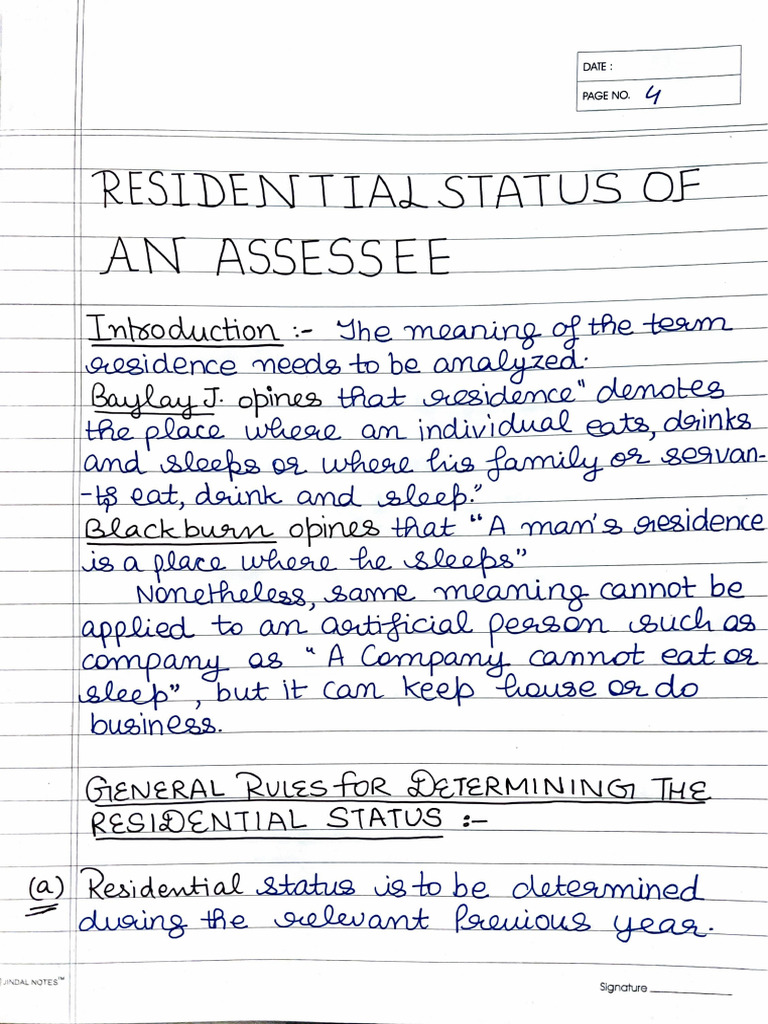 DATE :
PAGE NO. 4
RESIDENTIAL STATUS OF
AN ASSESSEE
Introduction :- The meaning of the term
residence needs to be analyzed.
Baylay J. opines that residence" denotes
the place where an individual eats, drinks
and sleeps or where his family or servan-
-ts eat, drink and sleep."
Blackburn opines that "A man's residence
is a place where he sleeps"
Nonetheless, same meaning cannot be
applied to an artificial person such as
company as "A Company cannot eat or
sleep", but it can keep house or do
business.
GENERAL RULES FOR DETERMINING THE
RESIDENTIAL STATUS :-
(a) Residential status is to be determined
during the relevant Previous year.
JINDAL NOTES™
Signature